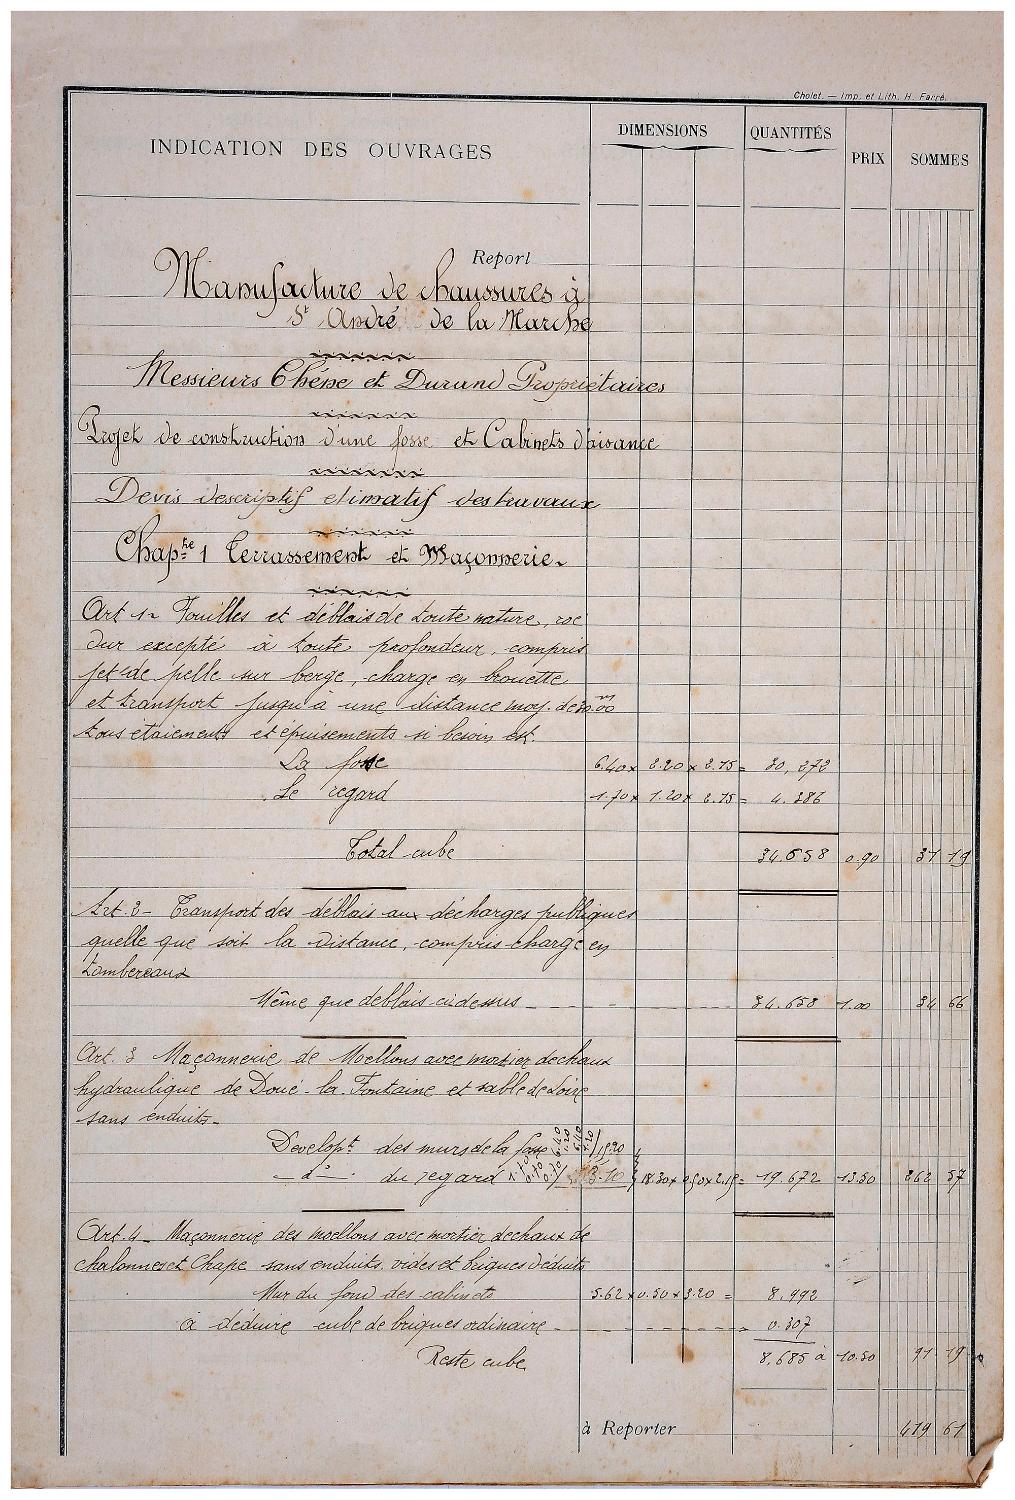 Cholet. — Imp. et Lith. H. Farré.
INDICATION DES OUVRAGES DIMENSIONS QUANTITÉS PRIX SOMMES
Report
Manufacture de chaussures à
St André de la Marche
Messieurs Chéne et Durand Propriétaires
Projet de construction d'une fosse et Cabinets d'aisance
Devis descriptif etimatif des travaux
Chaptre 1 Terrassement et Maçonnerie
Art 1 Fouilles et déblais de toute nature, roc
dur excepté à toute profondeur, compris
jet de pelle sur berge, charge en brouette
et transport jusqu'à une distance moy. de
tous étaiements et épuisements si besoin est.
La fosse 6.40 x 2.20 x 2.15 = 30,272
Le regard 1.70 x 1.20 x 2.15 = 4.386
Total cube 34.658 0.90 31 19
Art. 2 - Transport des déblais aux décharges publiques
quelle que soit la distance, compris charge en
tombereaux
Même que déblais ci-dessus 34.658 1.00 34 66
Art. 3 Maçonnerie de Moellons avec mortier de chaux
hydraulique de Doué-la-Fontaine et sable de Loire
sans enduits.
Developt des murs de la fosse 6.40 15.20
do du regard 18.30 x 0.50 x 2.15 = 19.672 13.50 262 57
Art. 4 - Maçonnerie des moellons avec mortier de chaux de
chalonnes et Chape sans enduits, vides et briques déduits
Mur du fond des cabinets 5.62 x 0.50 x 3.20 = 8.992
à déduire cube de briques ordinaire 0.307
Reste cube 8,685 à 10.50 91 19
à Reporter 419 61